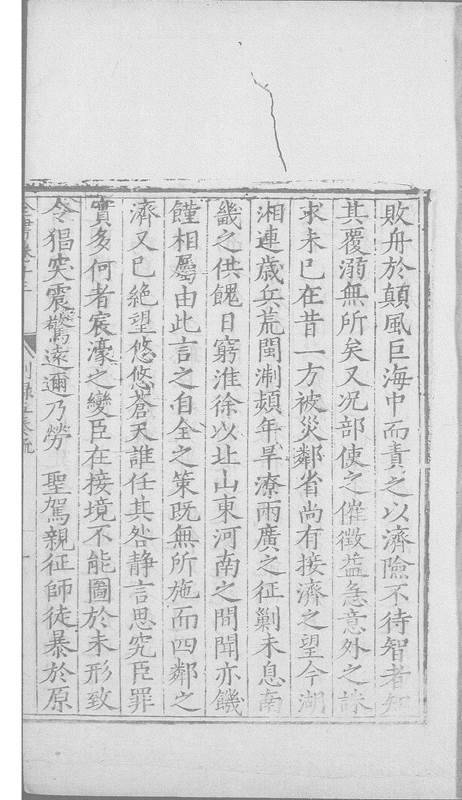 敗舟於顛風巨海中而責之以濟險不待智者知
其覆溺無所矣又况部使之催徵益急意外之誅
求未已在昔一方被災鄰省尚有接濟之望今湖
湘連歲兵荒閩浙頻年旱潦兩廣之征剿未息南
畿之供餽日窮淮徐以北山東河南之間聞亦饑
饉相屬由此言之自全之策既無所施而四鄰之
濟又已絶望悠悠蒼天誰任其咎静言思究臣罪
實多何者宸濠之變臣在接境不能圖於未形致
令猖突震驚遠邇乃勞 聖駕親征師徒暴於原